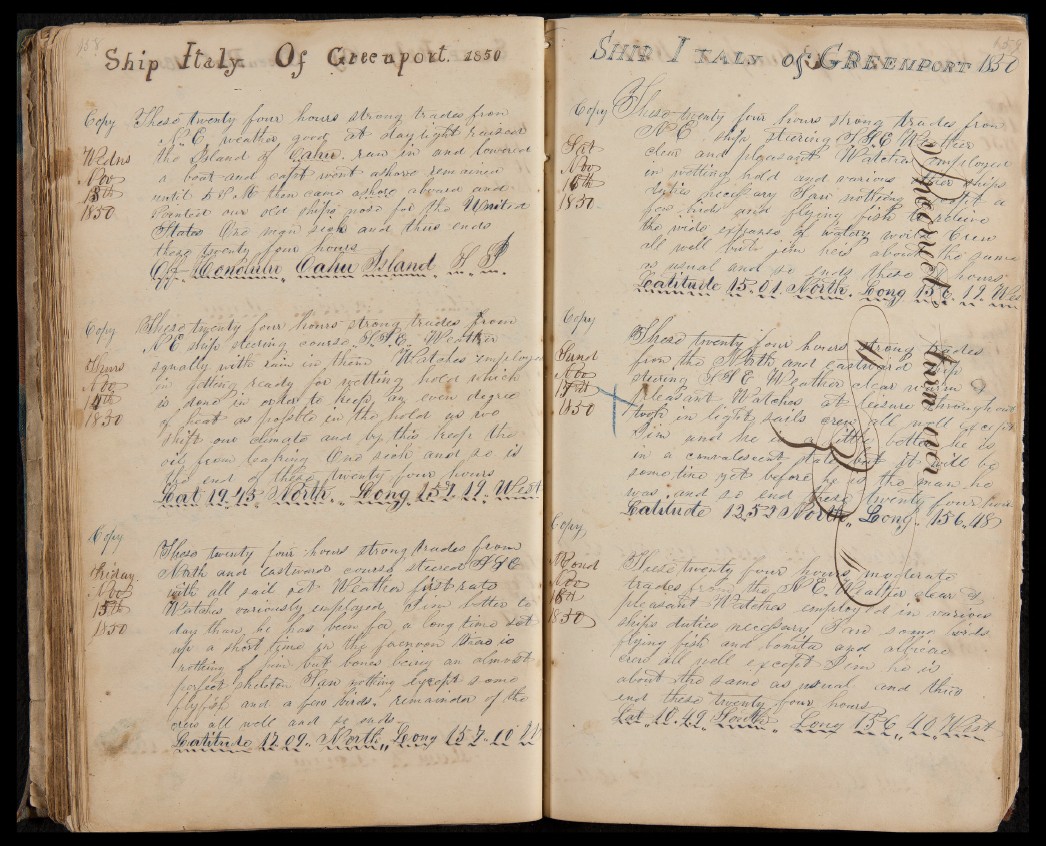 158
Ship Italy Of Greenport. 1850
Copy These twenty four hours strong trades from
N.E. weather good at daylight raised
Wedns the Island of Oahu. ran in and lowered
Nov a boat and capt went ashore remained
13th until 4 P.M then came aboard and
1850 Pointed our old ship's nose for the United
States One man sick and thus ends
these twenty four hours
Off Honolulu Oahu Island
Copy These twenty four hours strong trades from
N E ship steering course S.S.E. Weather
Thurs squally with rain in them Watches employed
Nov in getting ready for wetting hold which
14th is done in order to keep an even degree
1850 of heat as possible in the hold as we
shift our climate and by this keep the
oil from leaking One sick and so is
the end of these twenty four hours
Lat 19.43 North. Long 157.19. West
Copy These twenty four hours strong trades from
Friday North and eastward course steered S S E
Nov with all sail set Weather first rate
15th Watches variously employed, Jim better to
1850 day than he has been for a long time sat
up a short time in the forenoon there is
nothing of him but bones being an almost
perfect skeleton Saw nothing except some
flyfish and a few birds, remainder of the
crew all well and so ends
Latitude 17.09. North, Long 157.10 W
159
Ship Italy of Greenport 1850
Copy These twenty four hours strong trades from
N E ship steering S.S.E Weather
Sat clear and pleasant Watches employed
Nov in wetting hold and various other ships
16th duties necessary Saw nothing a
1850 few birds and flying fish to relieve
the wide expanse of watery world Crew
all well but Jim he's about the same
as usual and so ends these hours
Latitude 15.01. North. Long 156.19. West
Copy These twenty four hours strong trades
Sund from the North and eastward ship
Nov steering S S E Weather clear warm
17th pleasant Watches at leisure throughout
1850 took in light sails crew all well except
Jim and he is a little better he is
in a convalescent state but it will be
some time yet before he is the man he
was, and so end these twenty four hours
Latitude 12.52 North, Long. 156.18
Copy These twenty four hours moderate
Mond trades from the N E. Weather clear &
Nov pleasant Watches employed in various
18th ships duties necessary Saw some birds
1850 flying fish and bonita and
crew all well except Jim he is
about the same as usual and thus
end these twenty four hours
Lat. 10.49 Long 156 40 West